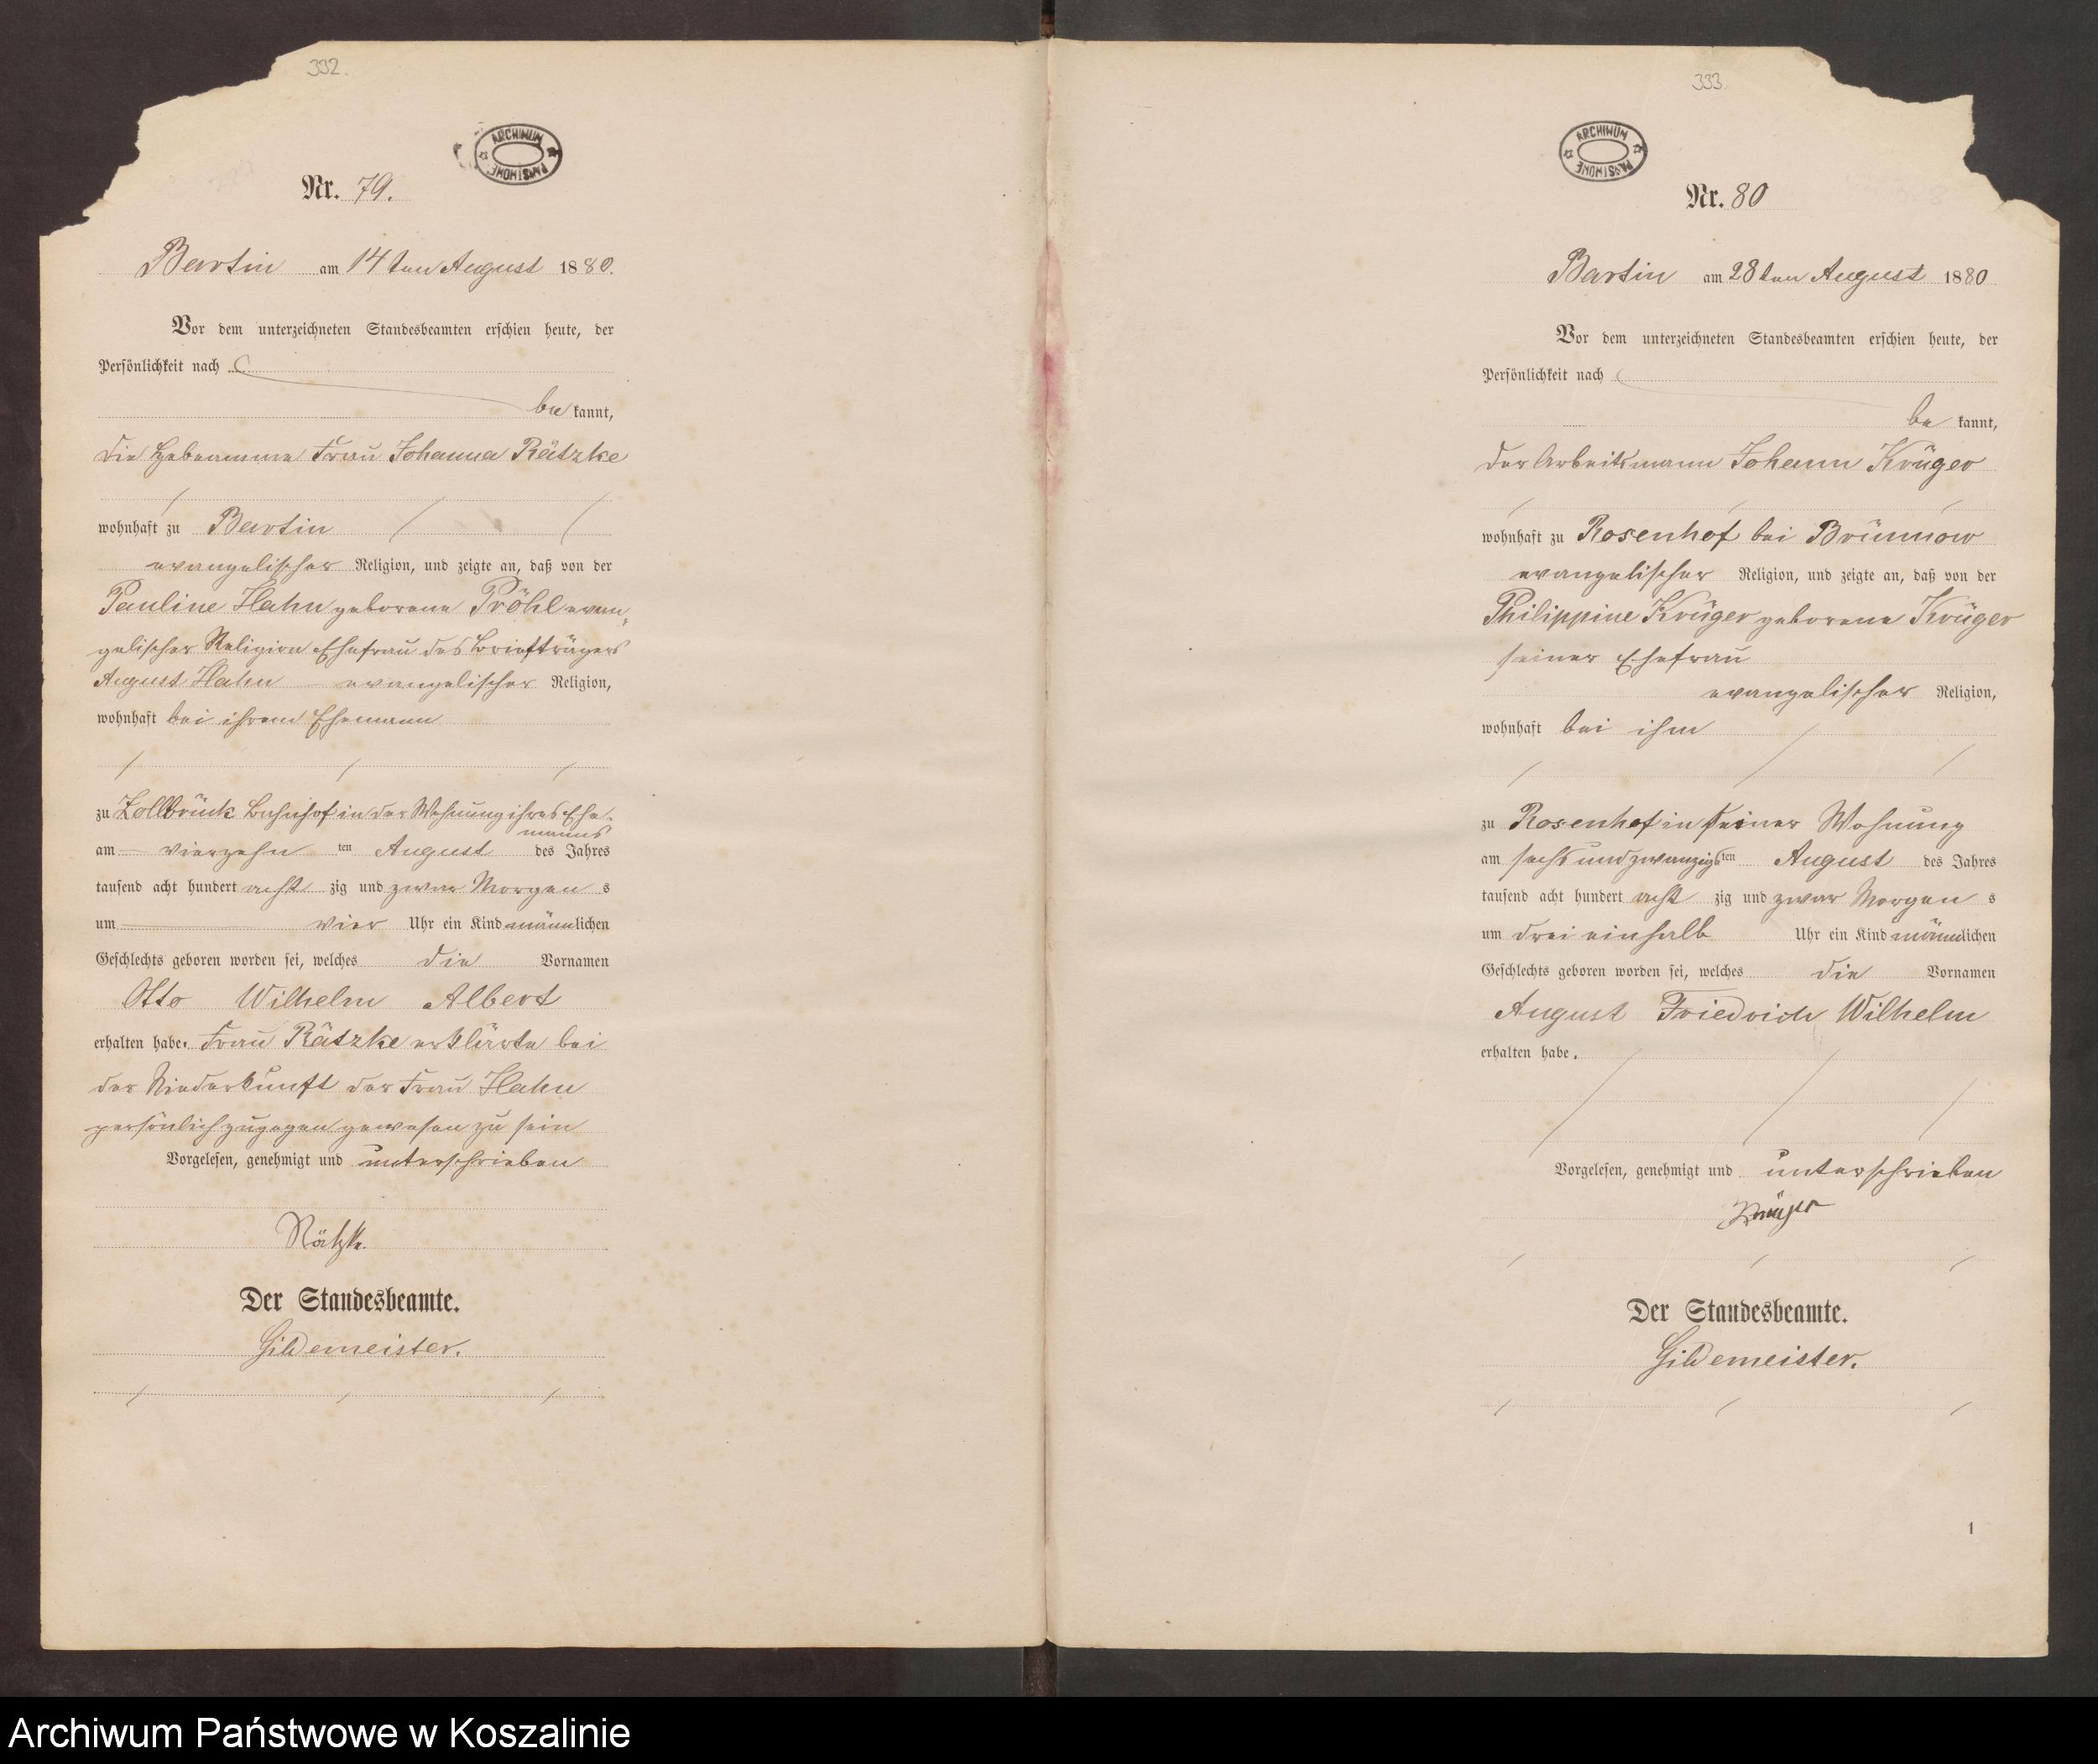 332.
ARCHIWUM PAŃSTWOWE
Nr. 79.
Bartin am 14ten August 1880.
Vor dem unterzeichneten Standesbeamten erschien heute, der
Persönlichkeit nach
be kannt,
die Hebeamme Frau Johanna Rätzke
wohnhaft zu Bartin
evangelischer Religion, und zeigte an, daß von der
Pauline Hahn geborene Pröhl evan„
gelischer Religion Ehefrau des Briefträgers
August Hahn evangelischer Religion,
wohnhaft bei ihrem Ehemann
zu Zollbrück Bahnhof in der Wohnung ihres Ehe-
manns
am vierzehn ten August des Jahres
tausend acht hundert acht zig und zwar Morgen s
um vier Uhr ein Kind männlichen
Geschlechts geboren worden sei, welches die Vornamen
Otto Wilhelm Albert
erhalten habe. Frau Rätzke erklärte bei
der Niederkunft der Frau Hahn
persönlich zugegen gewesen zu sein
Vorgelesen, genehmigt und unterschrieben
Rätzke.
Der Standesbeamte.
Gildemeister.
333.
ARCHIWUM PAŃSTWOWE
Nr. 80
Bartin am 28ten August 1880
Vor dem unterzeichneten Standesbeamten erschien heute, der
Persönlichkeit nach
be kannt,
der Arbeitsmann Johann Krüger
wohnhaft zu Rosenhof bei Brünnow
evangelischer Religion, und zeigte an, daß von der
Philippine Krüger geborene Krüger
seiner Ehefrau
evangelischer Religion,
wohnhaft bei ihm
zu Rosenhof in seiner Wohnung
am sechs und zwanzigsten August des Jahres
tausend acht hundert acht zig und zwar Morgen s
um drei einhalb Uhr ein Kind männlichen
Geschlechts geboren worden sei, welches die Vornamen
August Friedrich Wilhelm
erhalten habe.
Vorgelesen, genehmigt und unterschrieben
Krüger
Der Standesbeamte.
Gildemeister.
1
Archiwum Państwowe w Koszalinie